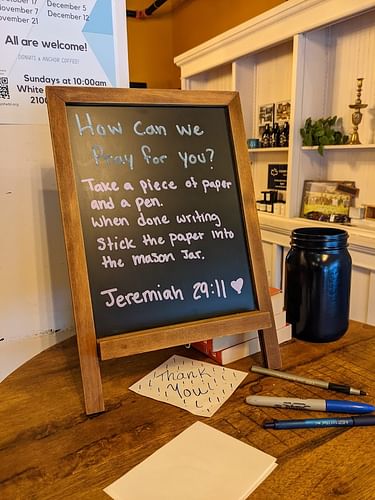 November 7
November 21
October 17
December 5
December 12
All are welcome!
DONUTS & ANCHOR COFFEE!
Sundays at 10:00am
White
210
How Can we
Pray for you?
Take a piece of paper
and a pen.
When done writing
Stick the paper into
the mason Jar.
Jeremiah 29:11 ♥
Thank
You!
Sharpie